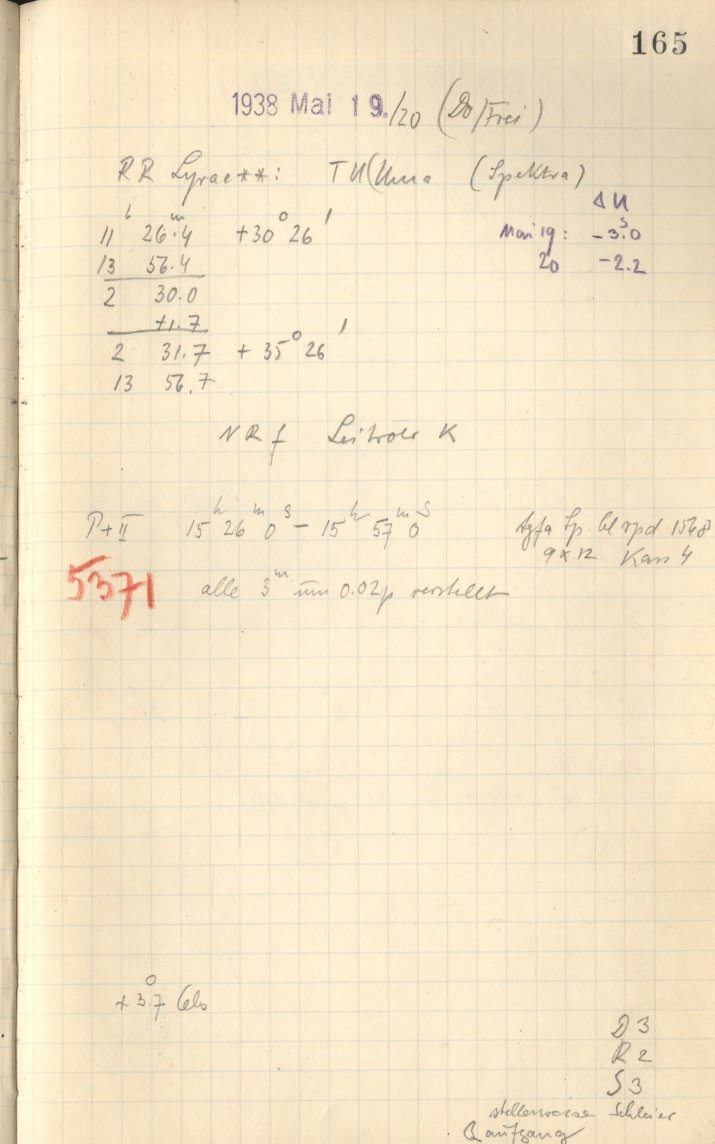 165
1938 Mai 19./20 (Do/Frei)
RR Lyrae**: TU Uma (Spektra)
Δ U
11ʰ 26ᵐ.4 +30° 26'
Mai 19: -3ˢ.0
13 56.4
20 -2.2
2 30.0
+1.7
2 31.7 +35° 26'
13 56.7
NRf Leitrohr K
P+II 15ʰ 26ᵐ 0ˢ - 15ʰ 57ᵐ 0ˢ Agfa Sp. bl rpd 1548
9x12 Kass 4
5371 alle 3ᵐ um 0.02p verstellt
+3°.7 Cels
D3
R2
S3
stellenweise Schleier
aufgang